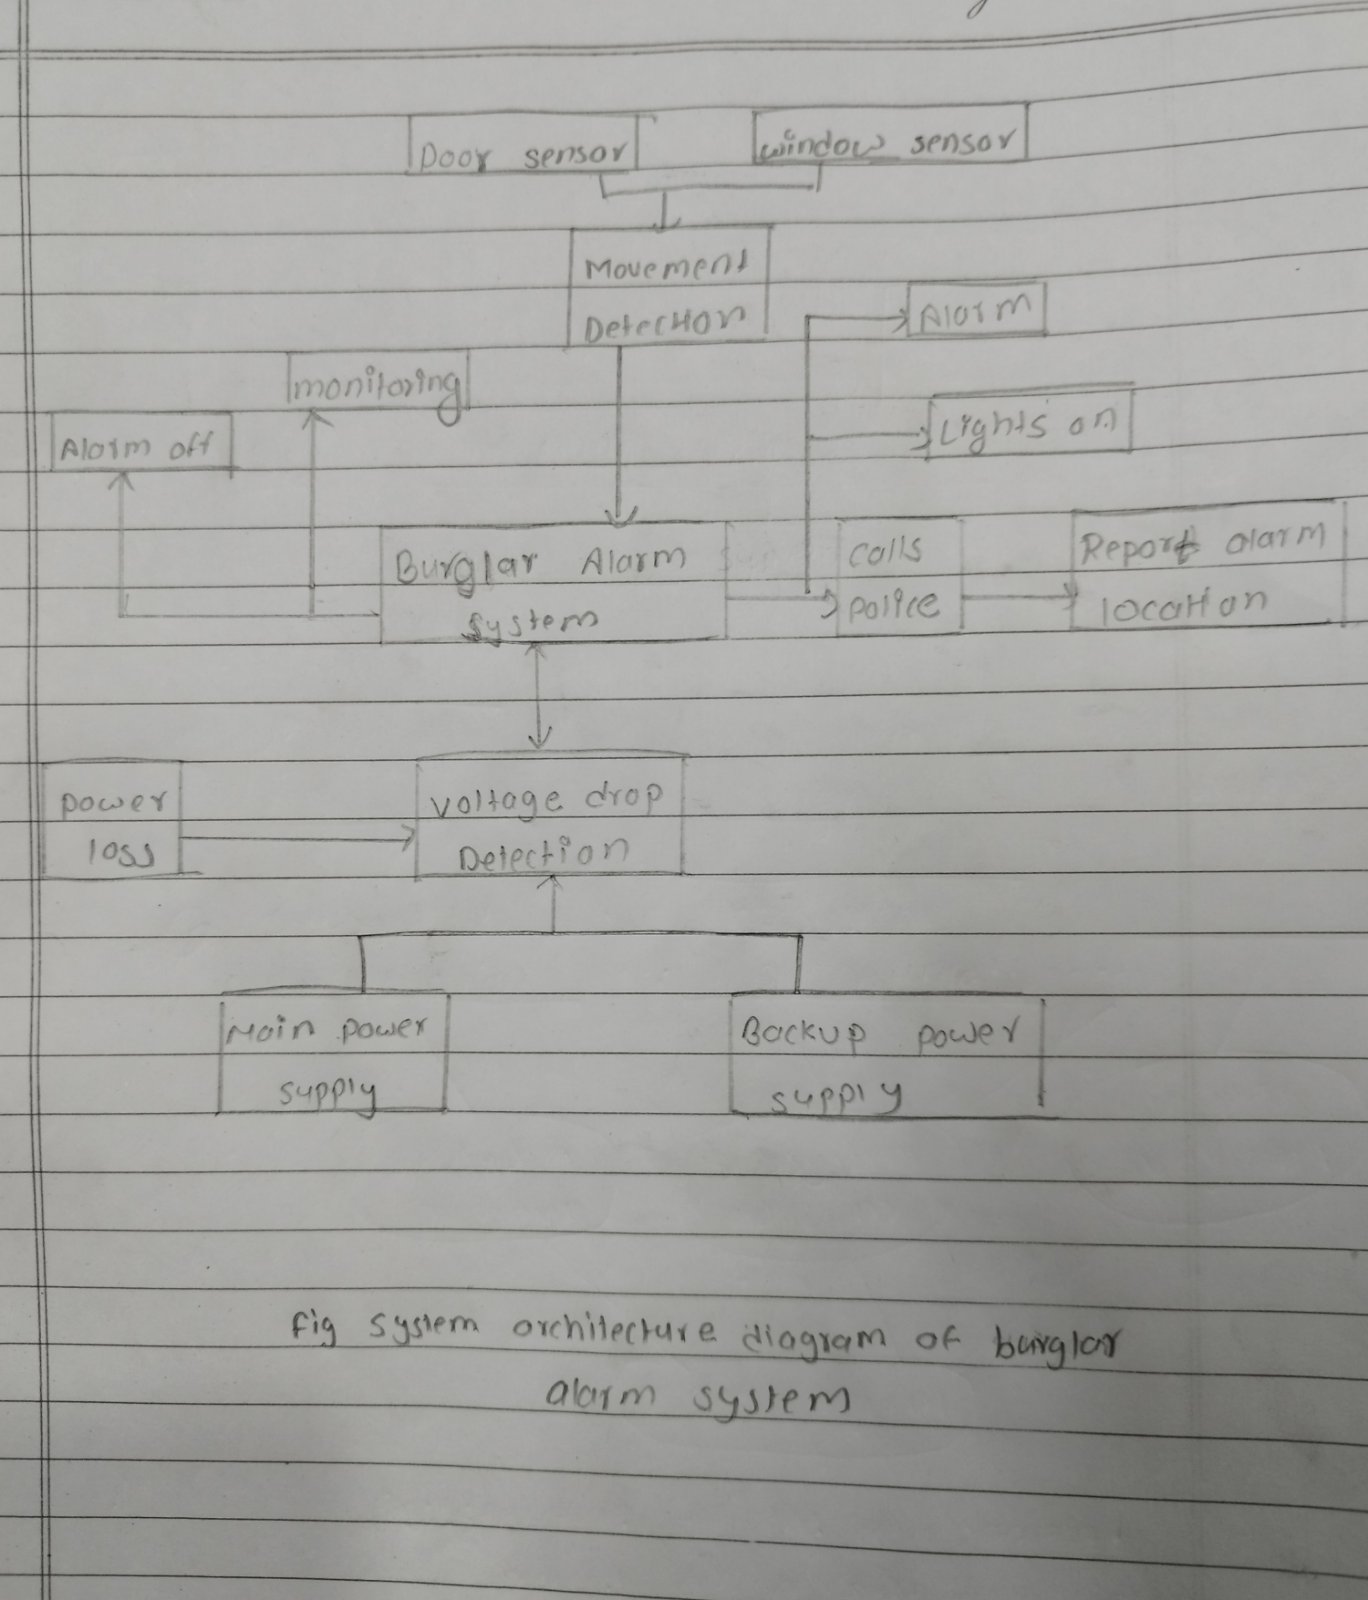 Door sensor
window sensor
Movement
Detection
Alarm
monitoring
Lights on
Alarm off
Burglar Alarm
system
calls
police
Report alarm
location
power
loss
voltage drop
Detection
Main power
supply
Backup power
supply
fig system architecture diagram of burglar
alarm system